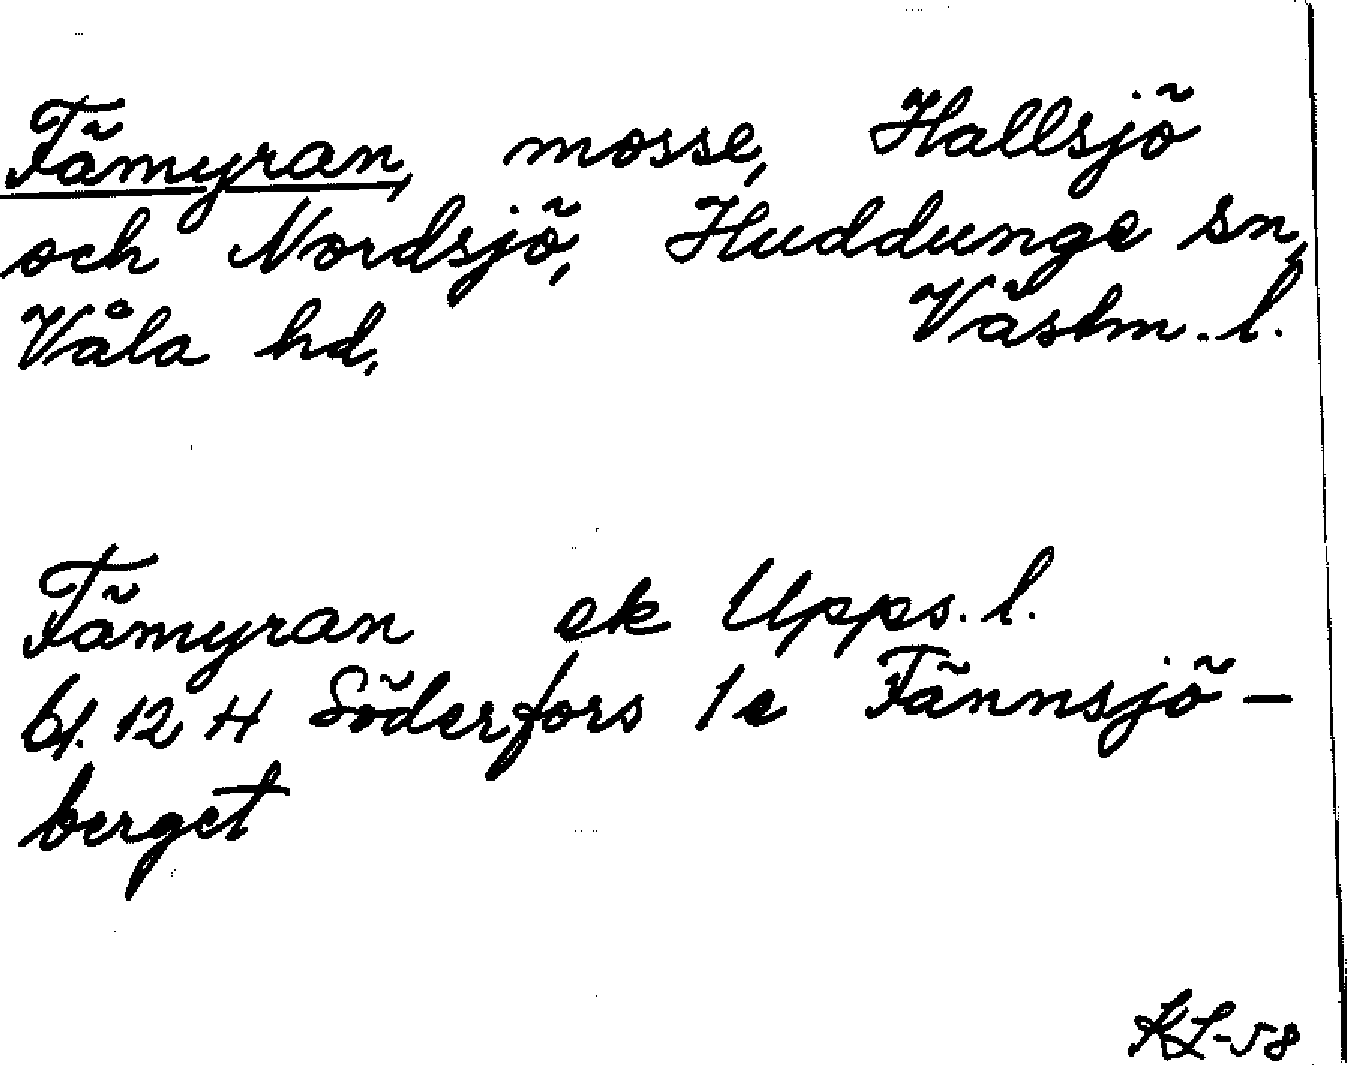 Fämyran, mosse, Hallsjö
och Nordsjö, Huddunge sn,
Våla hd. Västm. l.
Fämyran ek Upps. l.
bl. 12 H Söderfors 1e Fännsjö-
berget
KL-58